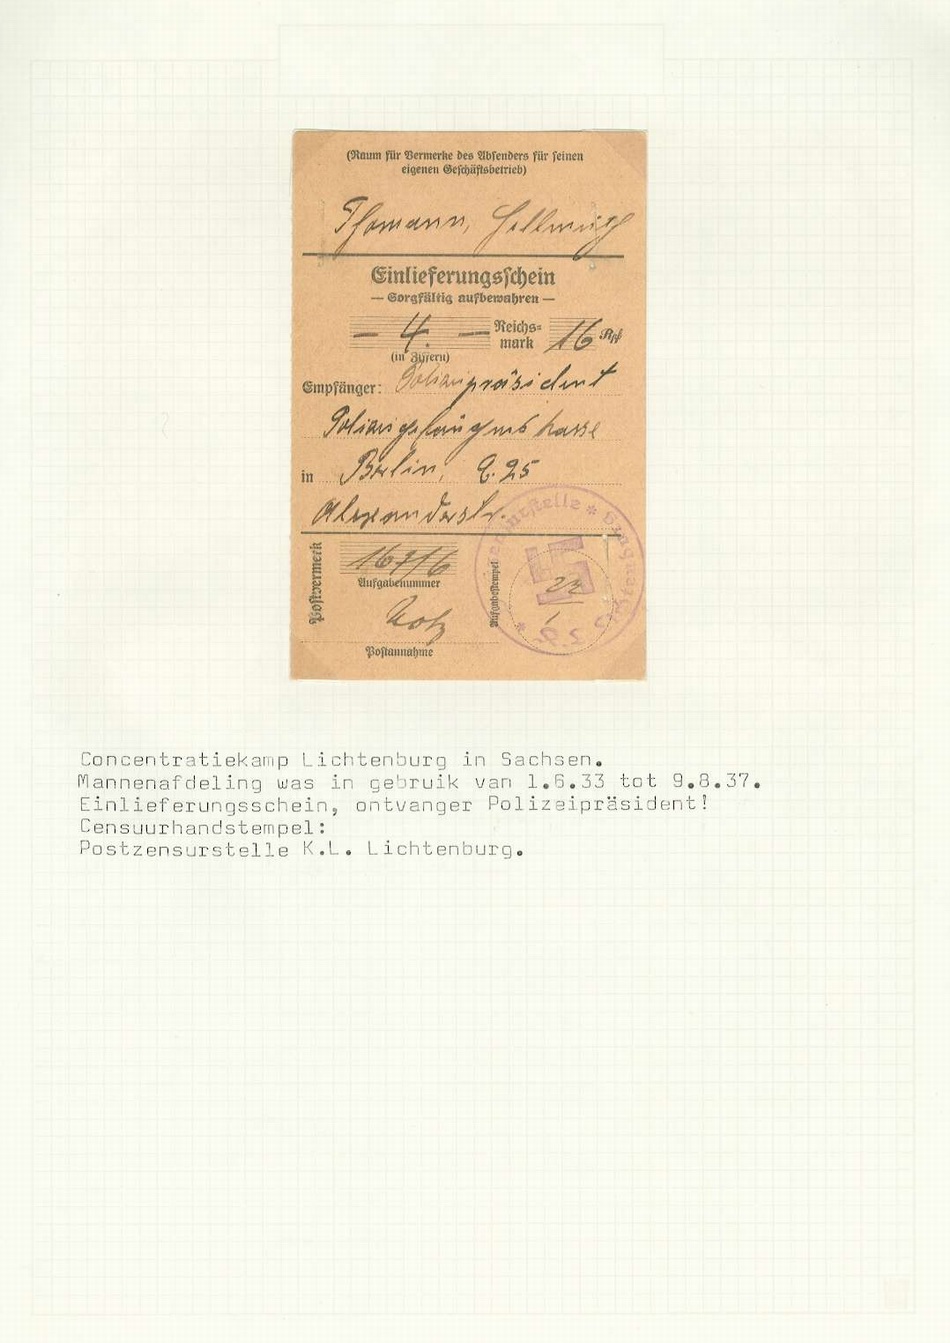 (Raum für Vermerke des Absenders für seinen
eigenen Geschäftsbetrieb)
Thomann, Hellmuth
Einlieferungsschein
— Sorgfältig aufbewahren —
— 4. — Reichs=
mark 16 Rpf
(in Ziffern)
Empfänger: Polizeipräsident
Polizeigefängnis kasse
in Berlin, C. 25
Alexanderstr.
Postvermerk
167/6
Aufgabenummer
Aufgabestempel
Postannahme
Concentratiekamp Lichtenburg in Sachsen.
Mannenafdeling was in gebruik van 1.6.33 tot 9.8.37.
Einlieferungsschein, ontvanger Polizeipräsident!
Censuurhandstempel:
Postzensurstelle K.L. Lichtenburg.